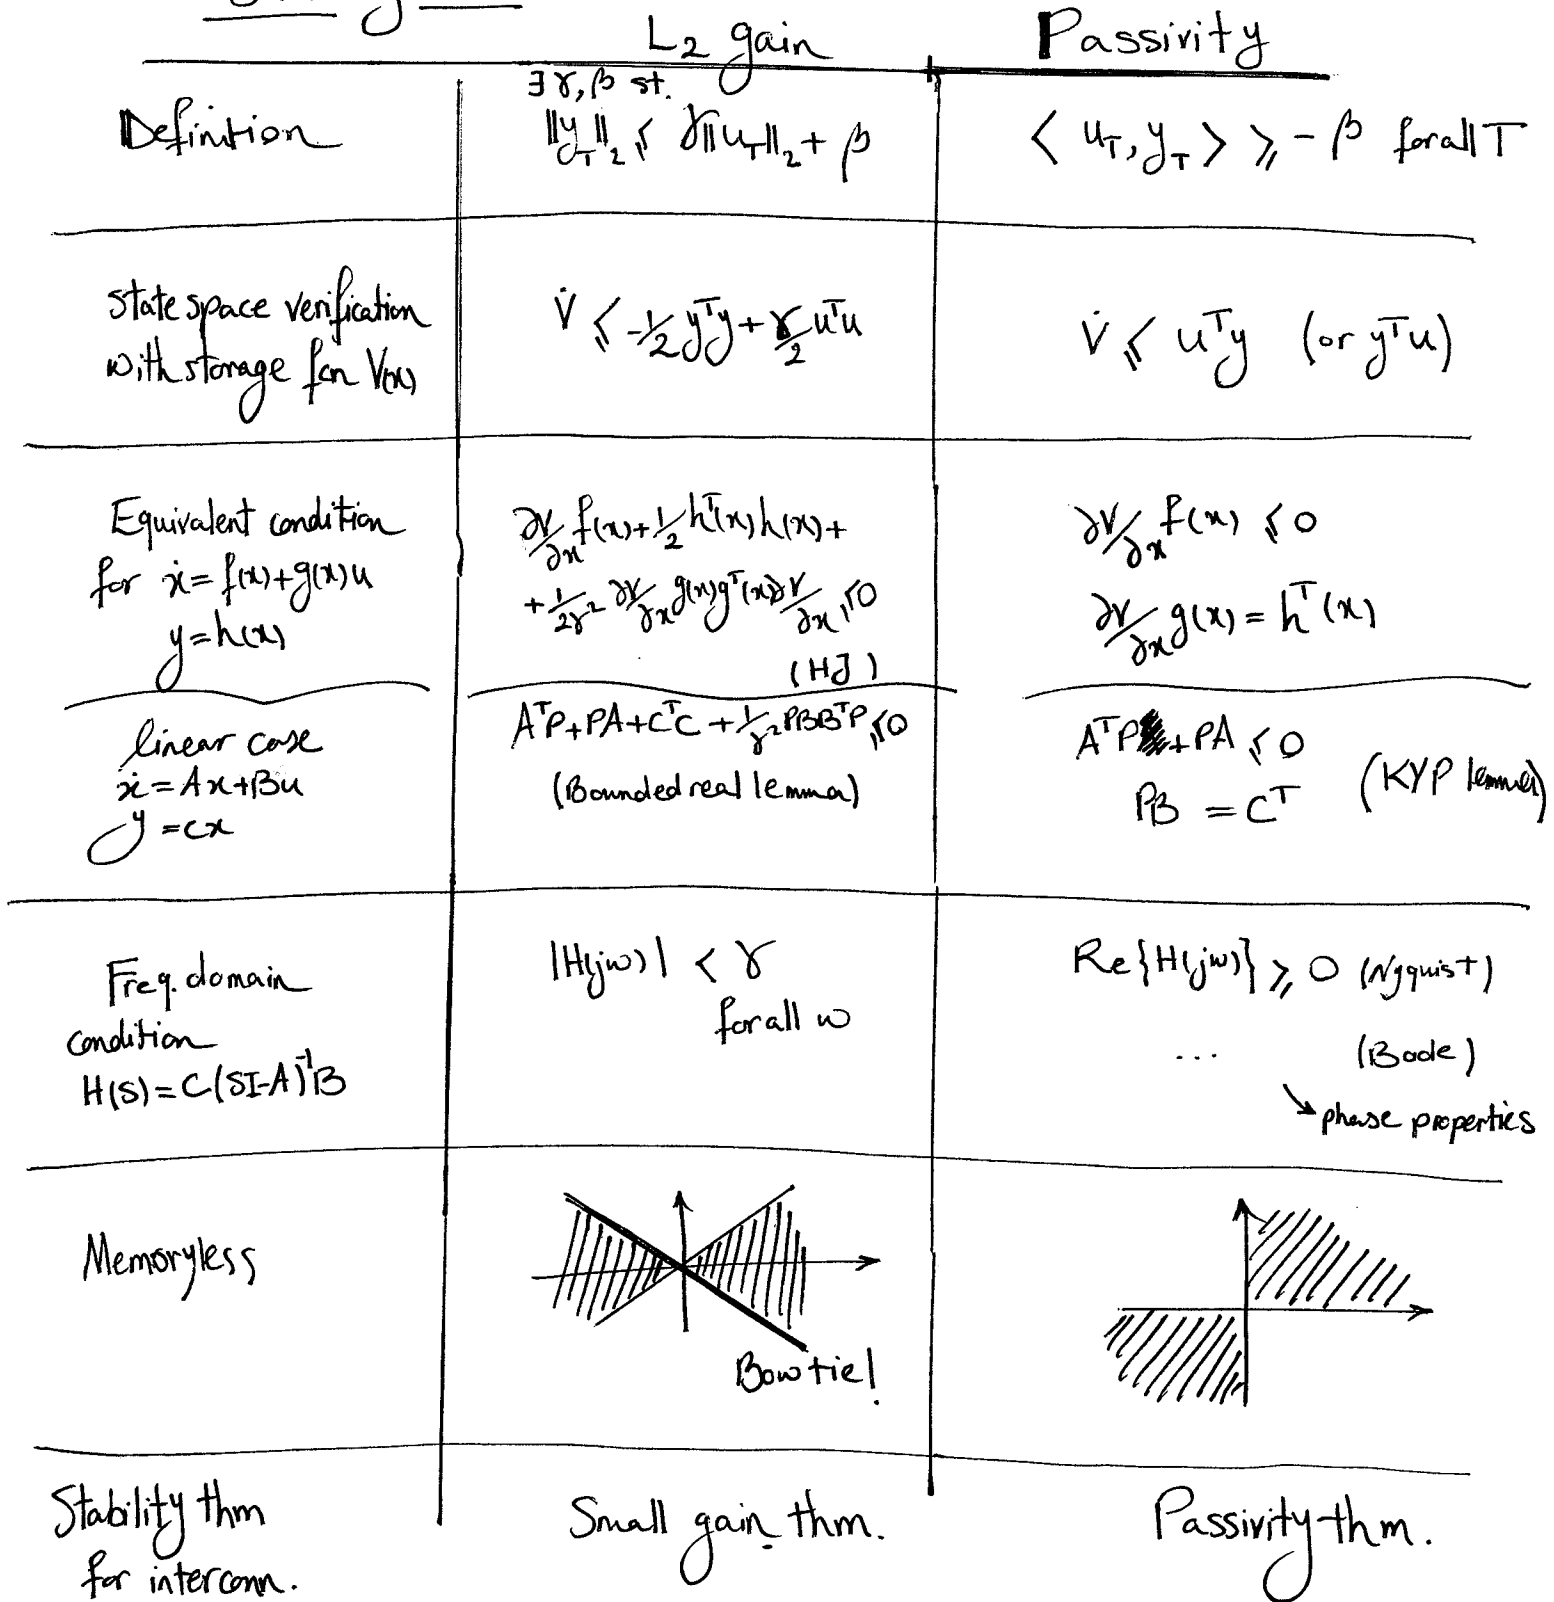 L₂ gain
Passivity
Definition
∃ γ, β st.
‖y_T‖₂ ⩽ γ‖u_T‖₂ + β
< u_T, y_T > ⩾ - β for all T
State space verification
with storage fcn V(x)
V̇ ⩽ -1/2 yᵀy + γ/2 uᵀu
V̇ ⩽ uᵀy (or yᵀu)
Equivalent condition
for ẋ = f(x)+g(x)u
y = h(x)
∂V/∂x f(x) + 1/2 hᵀ(x) h(x) +
+ 1/2γ² ∂V/∂x g(x) gᵀ(x) ∂V/∂x ⩽ 0
(HJ)
∂V/∂x f(x) ⩽ 0
∂V/∂x g(x) = hᵀ(x)
linear case
ẋ = Ax+Bu
y = cx
AᵀP+PA+CᵀC + 1/γ² PBBᵀP ⩽ 0
(Bounded real lemma)
AᵀP + PA ⩽ 0
PB = Cᵀ
(KYP lemma)
Freq. domain
condition
H(s) = C(SI-A)⁻¹B
|H(jw)| < γ
for all w
Re{H(jw)} ⩾ 0 (Nyquist)
... (Bode)
↘ phase properties
Memoryless
Bow tie!
Stability thm
for interconn.
Small gain thm.
Passivity thm.